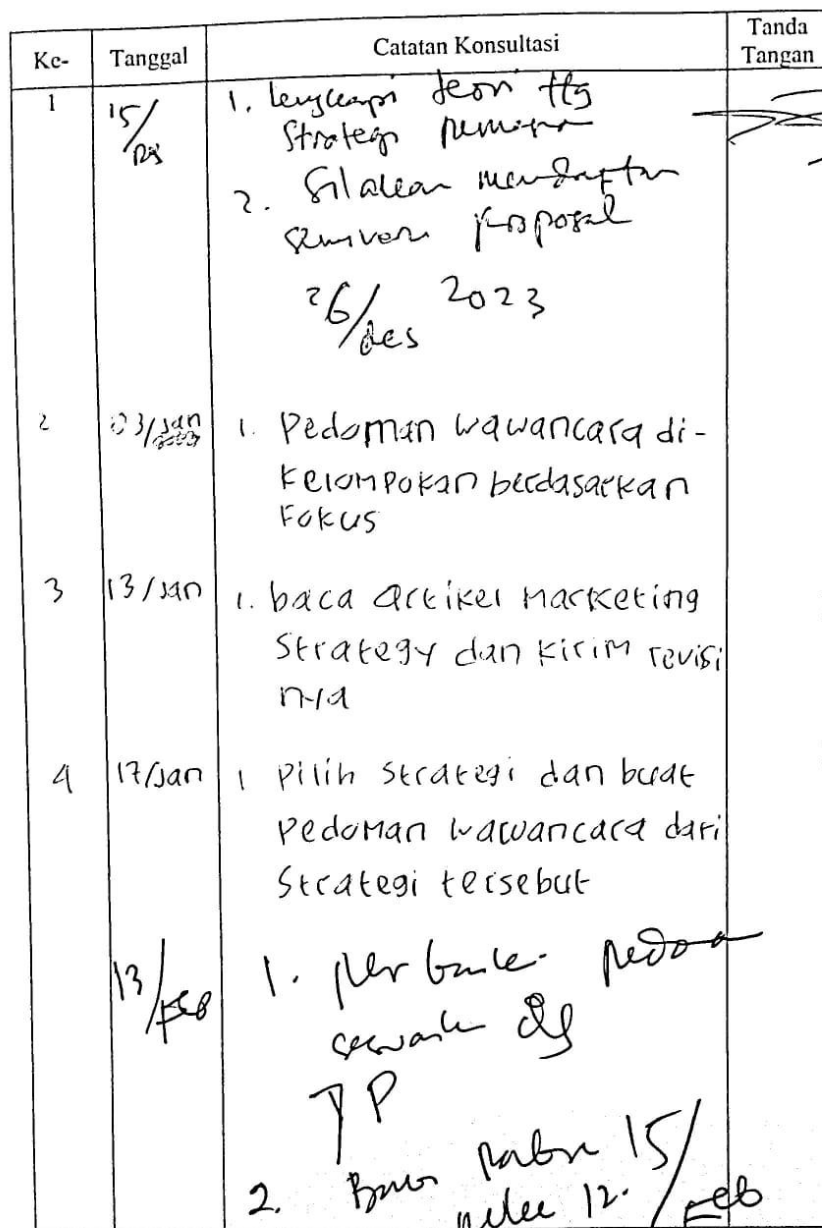 Ke- Tanggal Catatan Konsultasi Tanda Tangan
1 15/Des 1. lengkapi teori ttg
Strategi
2. Silakan mendaftar
seminar proposal
26/des 2023
2 03/Jan 1. Pedoman wawancara di-
kelompokan berdasarkan
Fokus
3 13/Jan 1. baca artikel Marketing
Strategy dan kirim revisi
nya
4 17/Jan 1 Pilih strategi dan buat
Pedoman wawancara dari
Strategi tersebut
13/Feb 1. pedoman
dg
2. 15/Feb
12.